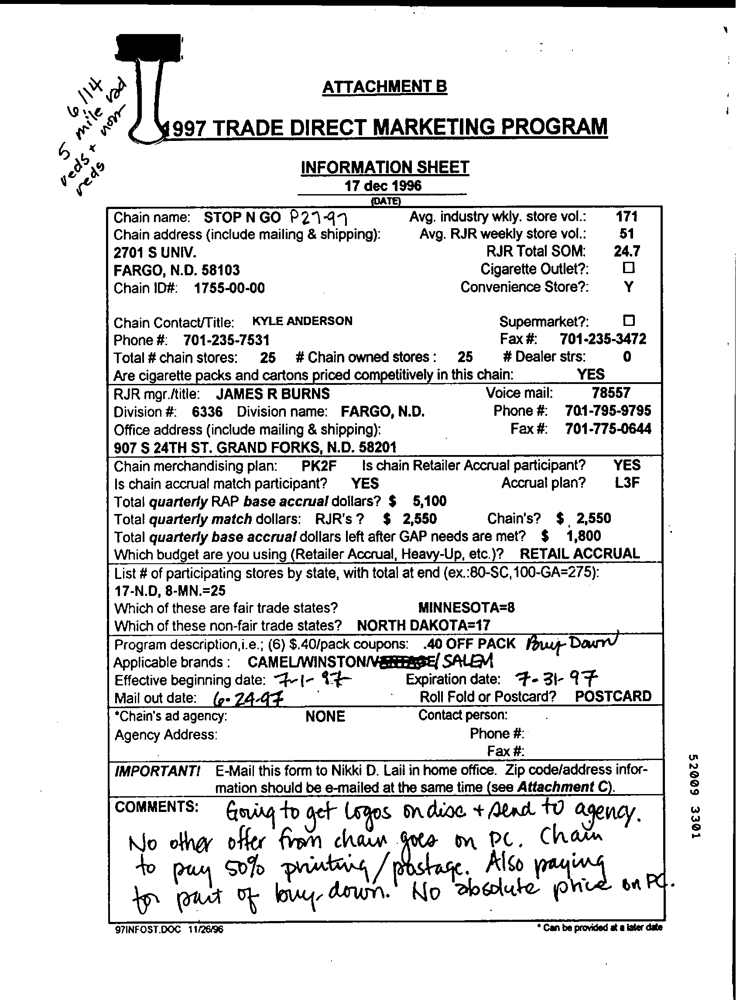 6/14
5 mile rad
reds + non
reds
ATTACHMENT B
1997 TRADE DIRECT MARKETING PROGRAM
INFORMATION SHEET
17 dec 1996
(DATE)
Chain name: STOP N GO P27-97 Avg. industry wkly. store vol.: 171
Chain address (include mailing & shipping): Avg. RJR weekly store vol.: 51
2701 S UNIV. RJR Total SOM: 24.7
FARGO, N.D. 58103 Cigarette Outlet?: ☐
Chain ID#: 1755-00-00 Convenience Store?: Y
Chain Contact/Title: KYLE ANDERSON Supermarket?: ☐
Phone #: 701-235-7531 Fax #: 701-235-3472
Total # chain stores: 25 # Chain owned stores : 25 # Dealer strs: 0
Are cigarette packs and cartons priced competitively in this chain: YES
RJR mgr./title: JAMES R BURNS Voice mail: 78557
Division #: 6336 Division name: FARGO, N.D. Phone #: 701-795-9795
Office address (include mailing & shipping): Fax #: 701-775-0644
907 S 24TH ST. GRAND FORKS, N.D. 58201
Chain merchandising plan: PK2F Is chain Retailer Accrual participant? YES
Is chain accrual match participant? YES Accrual plan? L3F
Total quarterly RAP base accrual dollars? $ 5,100
Total quarterly match dollars: RJR's ? $ 2,550 Chain's? $ 2,550
Total quarterly base accrual dollars left after GAP needs are met? $ 1,800
Which budget are you using (Retailer Accrual, Heavy-Up, etc.)? RETAIL ACCRUAL
List # of participating stores by state, with total at end (ex.:80-SC,100-GA=275):
17-N.D, 8-MN.=25
Which of these are fair trade states? MINNESOTA=8
Which of these non-fair trade states? NORTH DAKOTA=17
Program description,i.e.; (6) $.40/pack coupons: .40 OFF PACK Buy Down
Applicable brands : CAMEL/WINSTON/VANTAGE/ SALEM
Effective beginning date: 7-1-97 Expiration date: 7-31-97
Mail out date: 6-24-97 Roll Fold or Postcard? POSTCARD
*Chain's ad agency: NONE Contact person:
Agency Address: Phone #:
Fax #:
IMPORTANT! E-Mail this form to Nikki D. Lail in home office. Zip code/address infor-
mation should be e-mailed at the same time (see Attachment C).
COMMENTS: Going to get logos on disc + send to agency.
No other offer from chain goes on PC. Chain
to pay 50% printing/postage. Also paying
for part of buy-down. No absolute price on PC.
97INFOST.DOC 11/26/96 * Can be provided at a later date
52009 3301